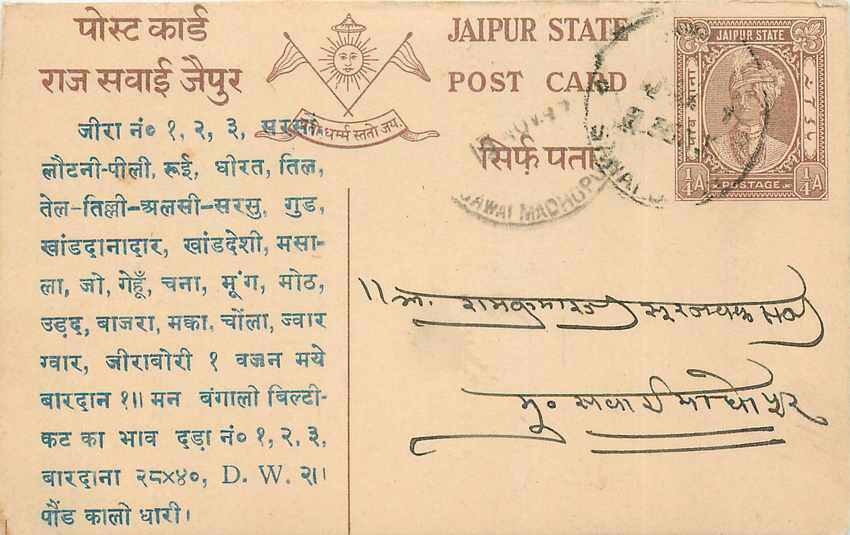 पोस्ट कार्ड
राज सवाई जैपुर
JAIPUR STATE
POST CARD
सिर्फ़ पता
धर्म्म स्ततो जय
JAIPUR STATE
पाव आना
¼A POSTAGE ¼A
NOV 47
SAWAI MADHOPUR
SAWAI
जीरा नं० १, २, ३, सरसों
लौटनी-पीली, रूई, घीरत, तिल,
तेल-तिल्ली-अलसी-सरसु, गुड,
खांडदानादार, खांडदेशी, मसा-
ला, जो, गेहूँ, चना, मूंग, मोठ,
उड़द, बाजरा, मक्का, चोंला, ज्वार
ग्वार, जीराबोरी १ वजन मये
बारदान १॥ मन बंगाली बिल्टी-
कट का भाव दड़ा नं० १, २, ३,
बारदाना २८×४०, D. W. २।
पौंड कालो धारी।
रामकुमारजी सूरजबक्स
मु० सवाई माधोपुर